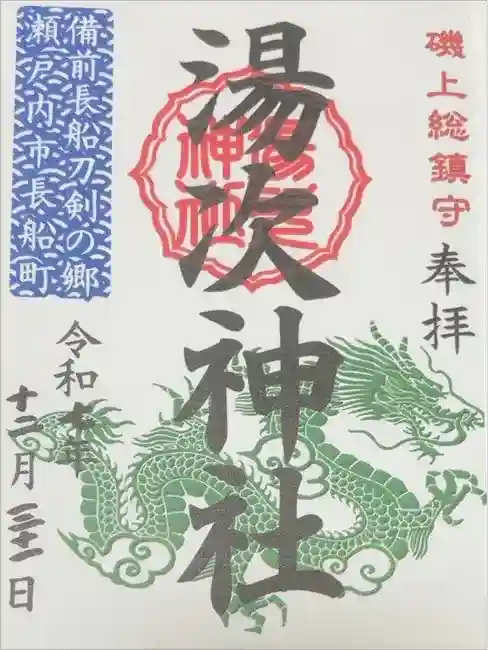 磯上総鎮守
奉拝
湯次神社
備前長船刀剣の郷
瀬戸内市長船町
令和七年
十二月三十一日